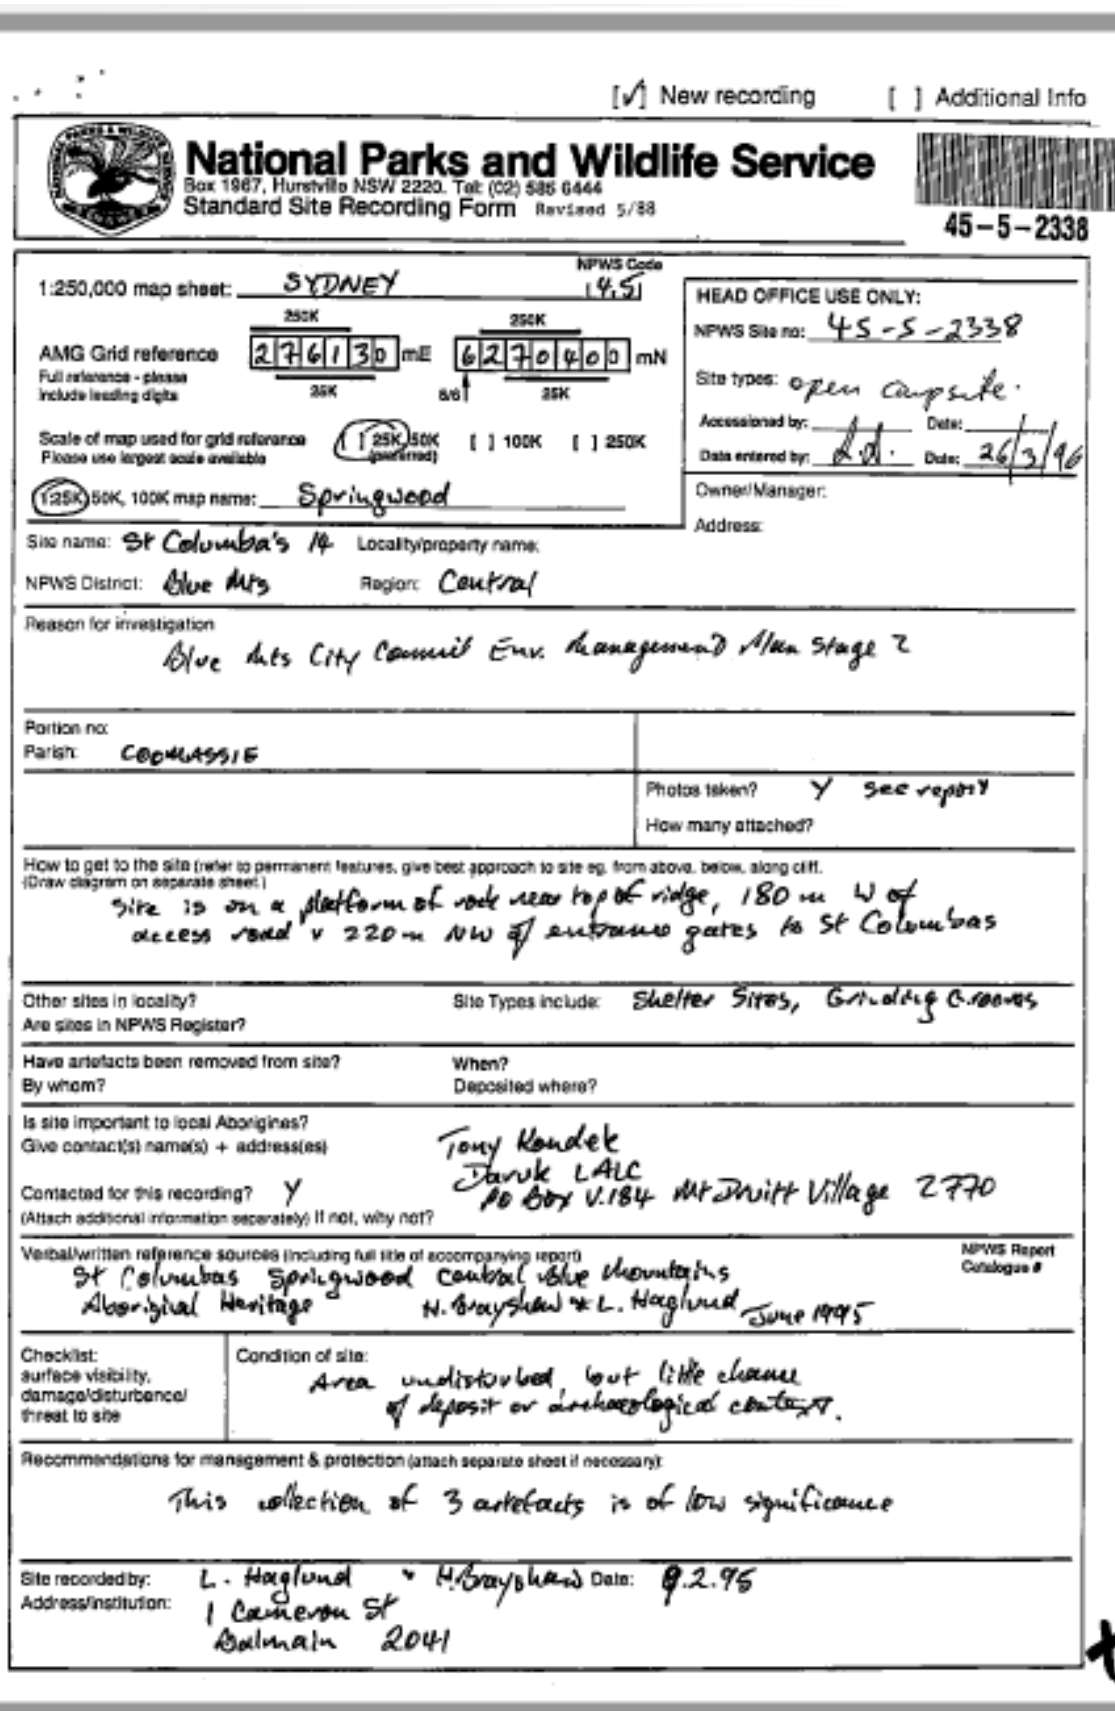 [✓] New recording [ ] Additional Info
National Parks and Wildlife Service
Box 1967, Hurstville NSW 2220. Tel: (02) 585 6444
Standard Site Recording Form Revised 5/88
45-5-2338
1:250,000 map sheet: SYDNEY NPWS Code 45
HEAD OFFICE USE ONLY:
NPWS Site no: 45-5-2338
250K 250K
AMG Grid reference 276130 mE 6270400 mN
Full reference - please
include leading digits
25K 6/6 25K
Site types: open campsite.
Accessioned by: Date:
Data entered by: Date: 26/3/96
Scale of map used for grid reference [ ] 25K, 50K [ ] 100K [ ] 250K
Please use largest scale available (preferred)
1:25K, 50K, 100K map name: Springwood
Owner/Manager:
Address:
Site name: St Columba's 14 Locality/property name:
NPWS District: Blue Mts Region: Central
Reason for investigation
Blue Mts City Council Env. Management Plan Stage 2
Portion no:
Parish: COOMASSIE
Photos taken? Y see report
How many attached?
How to get to the site (refer to permanent features, give best approach to site eg. from above, below, along cliff.
(Draw diagram on separate sheet.)
Site is on a platform of rock near top of ridge, 180 m W of
access road & 220 m NW of entrance gates to St Columbas
Other sites in locality? Site Types include: Shelter Sites, Grinding Grooves
Are sites in NPWS Register?
Have artefacts been removed from site? When?
By whom? Deposited where?
Is site important to local Aborigines?
Give contact(s) name(s) + address(es) Tony Kondek
Daruk LALC
Contacted for this recording? Y PO Box V.184 Mt Druitt Village 2770
(Attach additional information separately) If not, why not?
Verbal/written reference sources (including full title of accompanying report) NPWS Report
Catalogue #
St Columbas Springwood Central Blue Mountains
Aboriginal Heritage H. Brayshaw & L. Haglund June 1995
Checklist:
surface visibility,
damage/disturbance/
threat to site
Condition of site:
Area undisturbed, but little chance
of deposit or archaeological context.
Recommendations for management & protection (attach separate sheet if necessary):
This collection of 3 artefacts is of low significance
Site recorded by: L. Haglund & H. Brayshaw Date: 9.2.95
Address/institution: 1 Cameron St
Balmain 2041